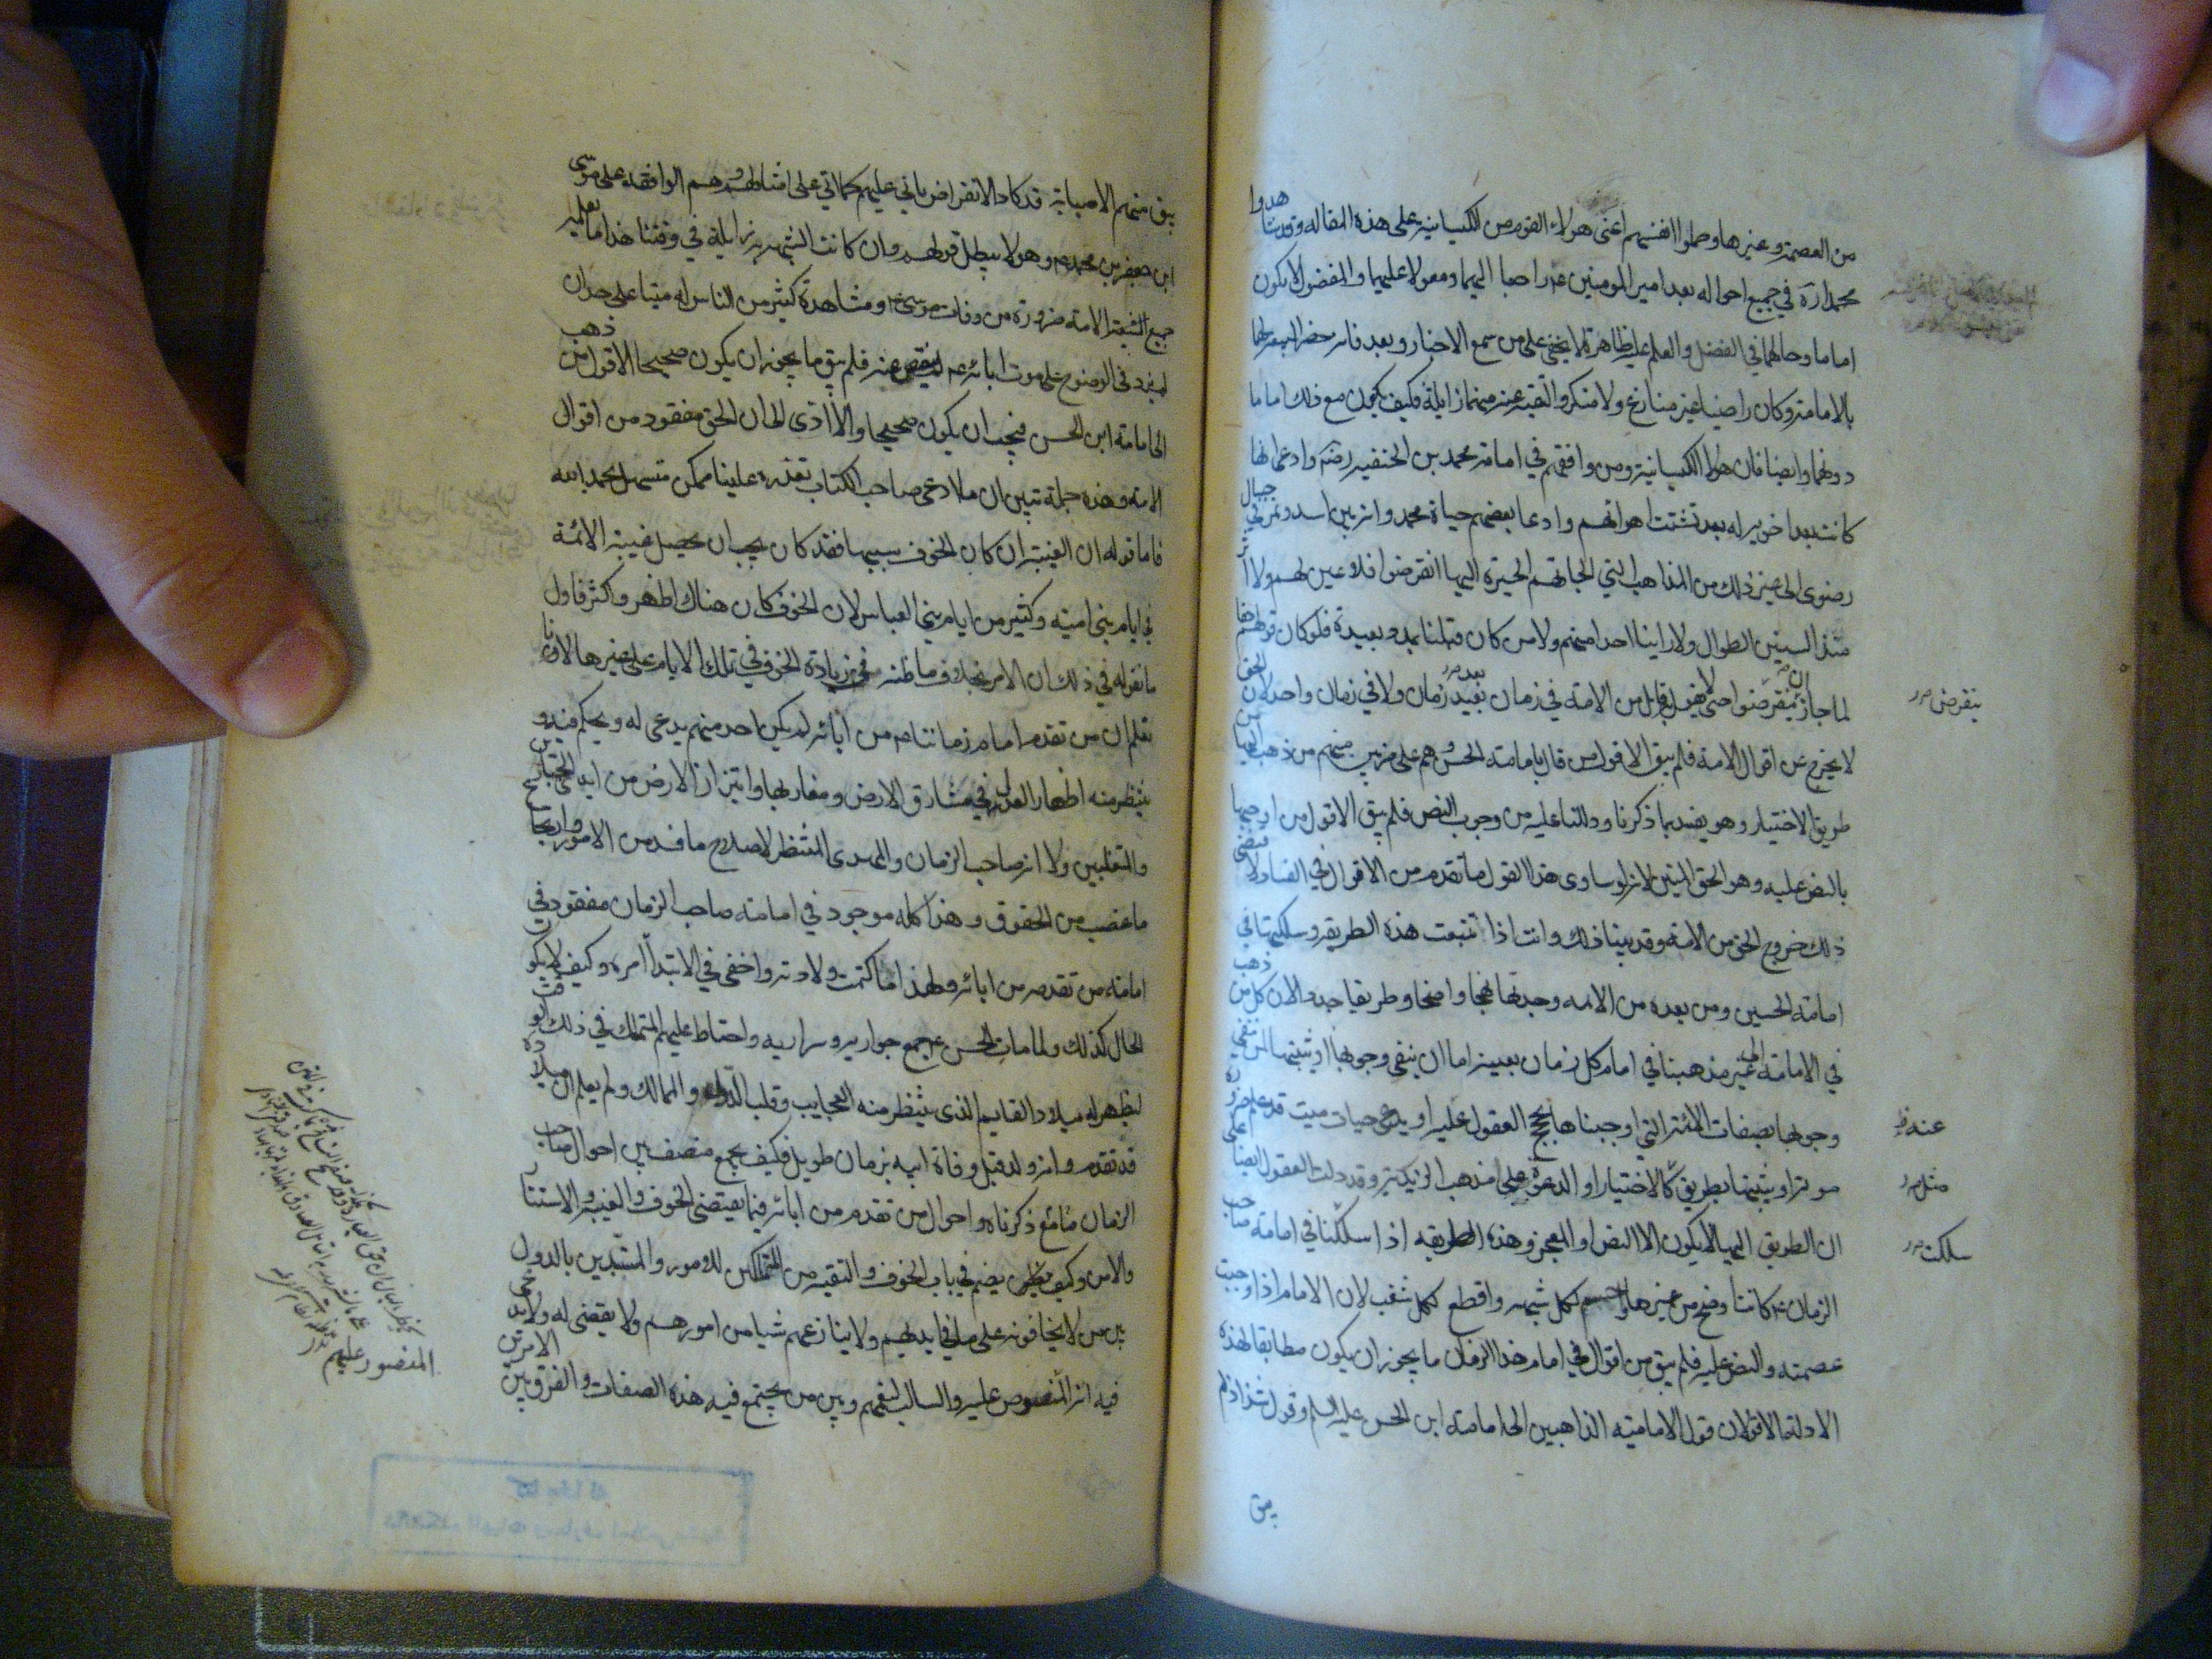 من العصمة وغيرها وحملوا انفسهم اعنى هولاء القوم من الكيسانية على هذه المقاله وقد شاهدوا
محمدا ره في جميع احواله بعد امير المومنين عم راجعا اليهما ومعولا عليهما والمفضول لا يكون
اماما وحالهما في الفضل والعلم عليه ظاهرة لا يخفى على من سمع الاخبار وبعد فانه حضر البيعه لهما
بالامامة وكان راضيا غير منازع ولا منكر والتقية عنه منهما زايلة فكيف يكون مع ذلك اماما
دونهما وايضا فان هولاء الكيسانية ومن وافقهم في امامة محمد بن الحنفيه رضه وادعى انها
كانت بعد اخويه له بعد تشتت اهوائهم وادعا بعضهم حياة محمد وانه بين اسد ونمر في جبال
رضوى الى غير ذلك من المذاهب التي الجاتهم الحيرة اليها انقرضوا فلا عين لهم ولا اثر
منذ السنين الطوال ولا راينا احدا منهم ولا من كان قبلنا بمدد بعيدة فلو كان قولهم حقا
لما جاز ان ينقرضوا حتى لا يقول بقولهم من الامة في زمان بعيد زمان ولا في زمان واحد لان الحق
لا يخرج عن اقوال الامة فلم يبق الا قول من قال بامامة الحسن وهم على ضربين منهم من ذهب اليها من
طريق الاختيار وهو يفسد بما ذكرنا ودللنا عليه من وجوب النص فلم يبق الا قول من اوجبها
بالنص عليه وهو الحق اليقين لانه لو ساوى هذا القول ما تقدم من الاقوال في الفساد لاقتضى
ذلك خروج الحق من الامة وقد بينا ذلك وانت اذا تتبعت هذه الطريقه وسلكتها في
امامة الحسين ومن بعده من الائمه وجدتها نهجا واضحا وطريقا جددا لان كل من ذهب
في الامامة الى غير مذهبنا في امام كل زمان بعينه اما ان ينفى وجوبها او يثبتها لمن تنفى
وجوبها بصفات الائمة التي اوجبناها بحجج العقول عليه او يدعى حيات ميت قد علم ضرورة
موته او يثبتها بطريق كالاختيار او الدعوة على مذهب الزيدية وقد دلت العقول ايضا على
ان الطريق اليها لا يكون الا النص او المعجز وهذه الطريقه اذا سلكنا في امامة صاحب
الزمان عم كانت اوضح من غيرها واحسم لكل شبهه واقطع لكل شغب لان الامام اذا وجبت
عصمته والنص عليه فلم يبق من اقوال في امام هذا الزمان ما يجوز ان يكون مطابقا لهذه
الادلة الا قولان قول الامامية الذاهبين الى امامة ابن الحسن عليه السلم وقول شذاذ لم
يبق
ينقرض
عنه
مثل
سلكت
يبق منهم الا صبابة قد كاد الانقراض ياتي عليهم كما اتى على امثالهم وهم الواقفه على موسى
ابن جعفر بن محمد عم وهو لا يبطل قولهم وان كانت الشبهه به زايلة في وقتنا هذا ما يعلمه
جميع الشيعة الامامة ضرورة من وفات موسى عم ومشاهدة كثير من الناس له ميتا على حد ان
لم يزد في الوضوح على موت ابائه عم لم ينقص عنه فلم يبق ما يجوز ان يكون صحيحا الا قول من ذهب
الى امامة ابن الحسن فيجب ان يكون صحيحا والا ادى الى ان الحق مفقود من اقوال
الامة وهذه جملة تبين ان ما ادعى صاحب الكتاب تعذره علينا ممكن متسهل بحمد الله
فاما قوله ان الغيبة ان كان الخوف سببها فقد كان يجب ان يحصل غيبة الائمة
في ايام بنى امية وكثير من ايام بنى العباس لان الخوف كان هناك اظهر واكثر فاول
ما نقوله في ذلك ان الامر بخلاف ما ظنه في زيادة الخوف في تلك الايام على غيرها لانا
نعلم ان من تقدم امام زماننا عم من ابائه لم يكن احد منهم يدعى له ويحكم فيه و
ينتظر منه اظهار العدل في مشارق الارض ومغاربها وابتزاز الارض من ايدى المتملكين
والمتغلبين ولا انه صاحب الزمان والمهدى المنتظر لاصلاح ما فسد من الامور وارتجاع
ما غصب من الحقوق وهذا كله موجود في امامة صاحب الزمان مفقود في
امامة من تقدمه من ابائه ولهذا ما كتمت ولادته واخفى في الابتدا امره وكيف لا يكون
الحال كذلك ولما مات الحسن عم جمع جواريه وسراريه واحتاط عليهم المتملك في ذلك الوقت
ليظهر له ميلاد القايم الذى ينتظر منه العجايب وقلب الدول والممالك ولم يعلم ان ميلاده
قد تقدم وانه ولد قبل وفاة ابيه بزمان طويل فكيف يجمع منصف بين احوال صاحب
الزمان مع ما ذكرناه واحوال من تقدم من ابائه فيما يقتضى الخوف والغيبة والاستتار
والامن وكيف يظن يضم في باب الخوف والتقيه من المتملكين للامور والمستبدين بالدول
بين من لا يخافونه على ما في ايديهم ولا ينازعهم شيا من امورهم ولا يقضى له ولا يدعى
فيه انه المنصوص عليه والسالب لنعمهم وبين من يجتمع فيه هذه الصفات والفرق بين الامرين
المنصور عليهم